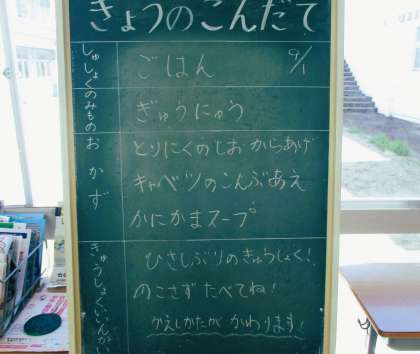 きょうのこんだて
しゅしょく ごはん 9/1
のみもの ぎゅうにゅう
おかず とりにくのしおからあげ
キャベツのこんぶあえ
かにかまスープ
きゅうしょくいいんかい
ひさしぶりのきゅうしょく!
のこさずたべてね!
かえしかたがかわります!